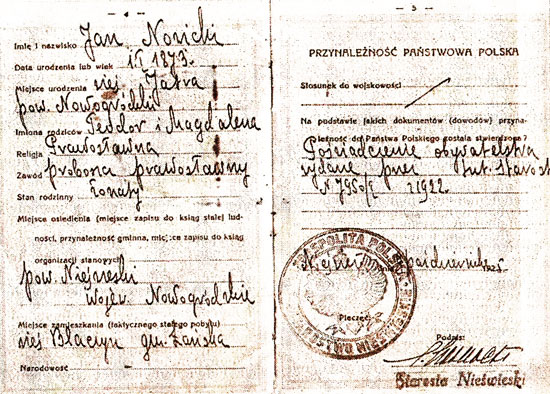 — 4 —
Imię i nazwisko Jan Nowicki
Data urodzenia lub wiek 1873.
Miejsce urodzenia wieś Jatra
pow. Nowogródzki
Imiona rodziców Teodor i Magdalena
Religja Prawosławna
Zawód proboszcz prawosławny
Stan rodzinny żonaty
Miejsce osiedlenia (miejsce zapisu do ksiąg stałej lud-
ności, przynależność gminna, miejsce zapisu do ksiąg
organizacji stanowych)
pow. Nieświeski
wojew. Nowogródzkie
Miejsce zamieszkania (faktycznego stałego pobytu)
wieś gm.
Narodowość
— 5 —
PRZYNALEŻNOŚĆ PAŃSTWOWA POLSKA
Stosunek do wojskowości
Na podstawie jakich dokumentów (dowodów) przyna-
leżność do Państwa Polskiego została stwierdzona?
Poświadczenie obywatelstwa
wydane przez tut. Starost
N 7950/I 1922
Nieśwież października
RZECZPOSPOLITA POLSKA
STAROSTWO NIEŚWIESKIE
Pieczęć
Podpis:
Starosta Nieświeski